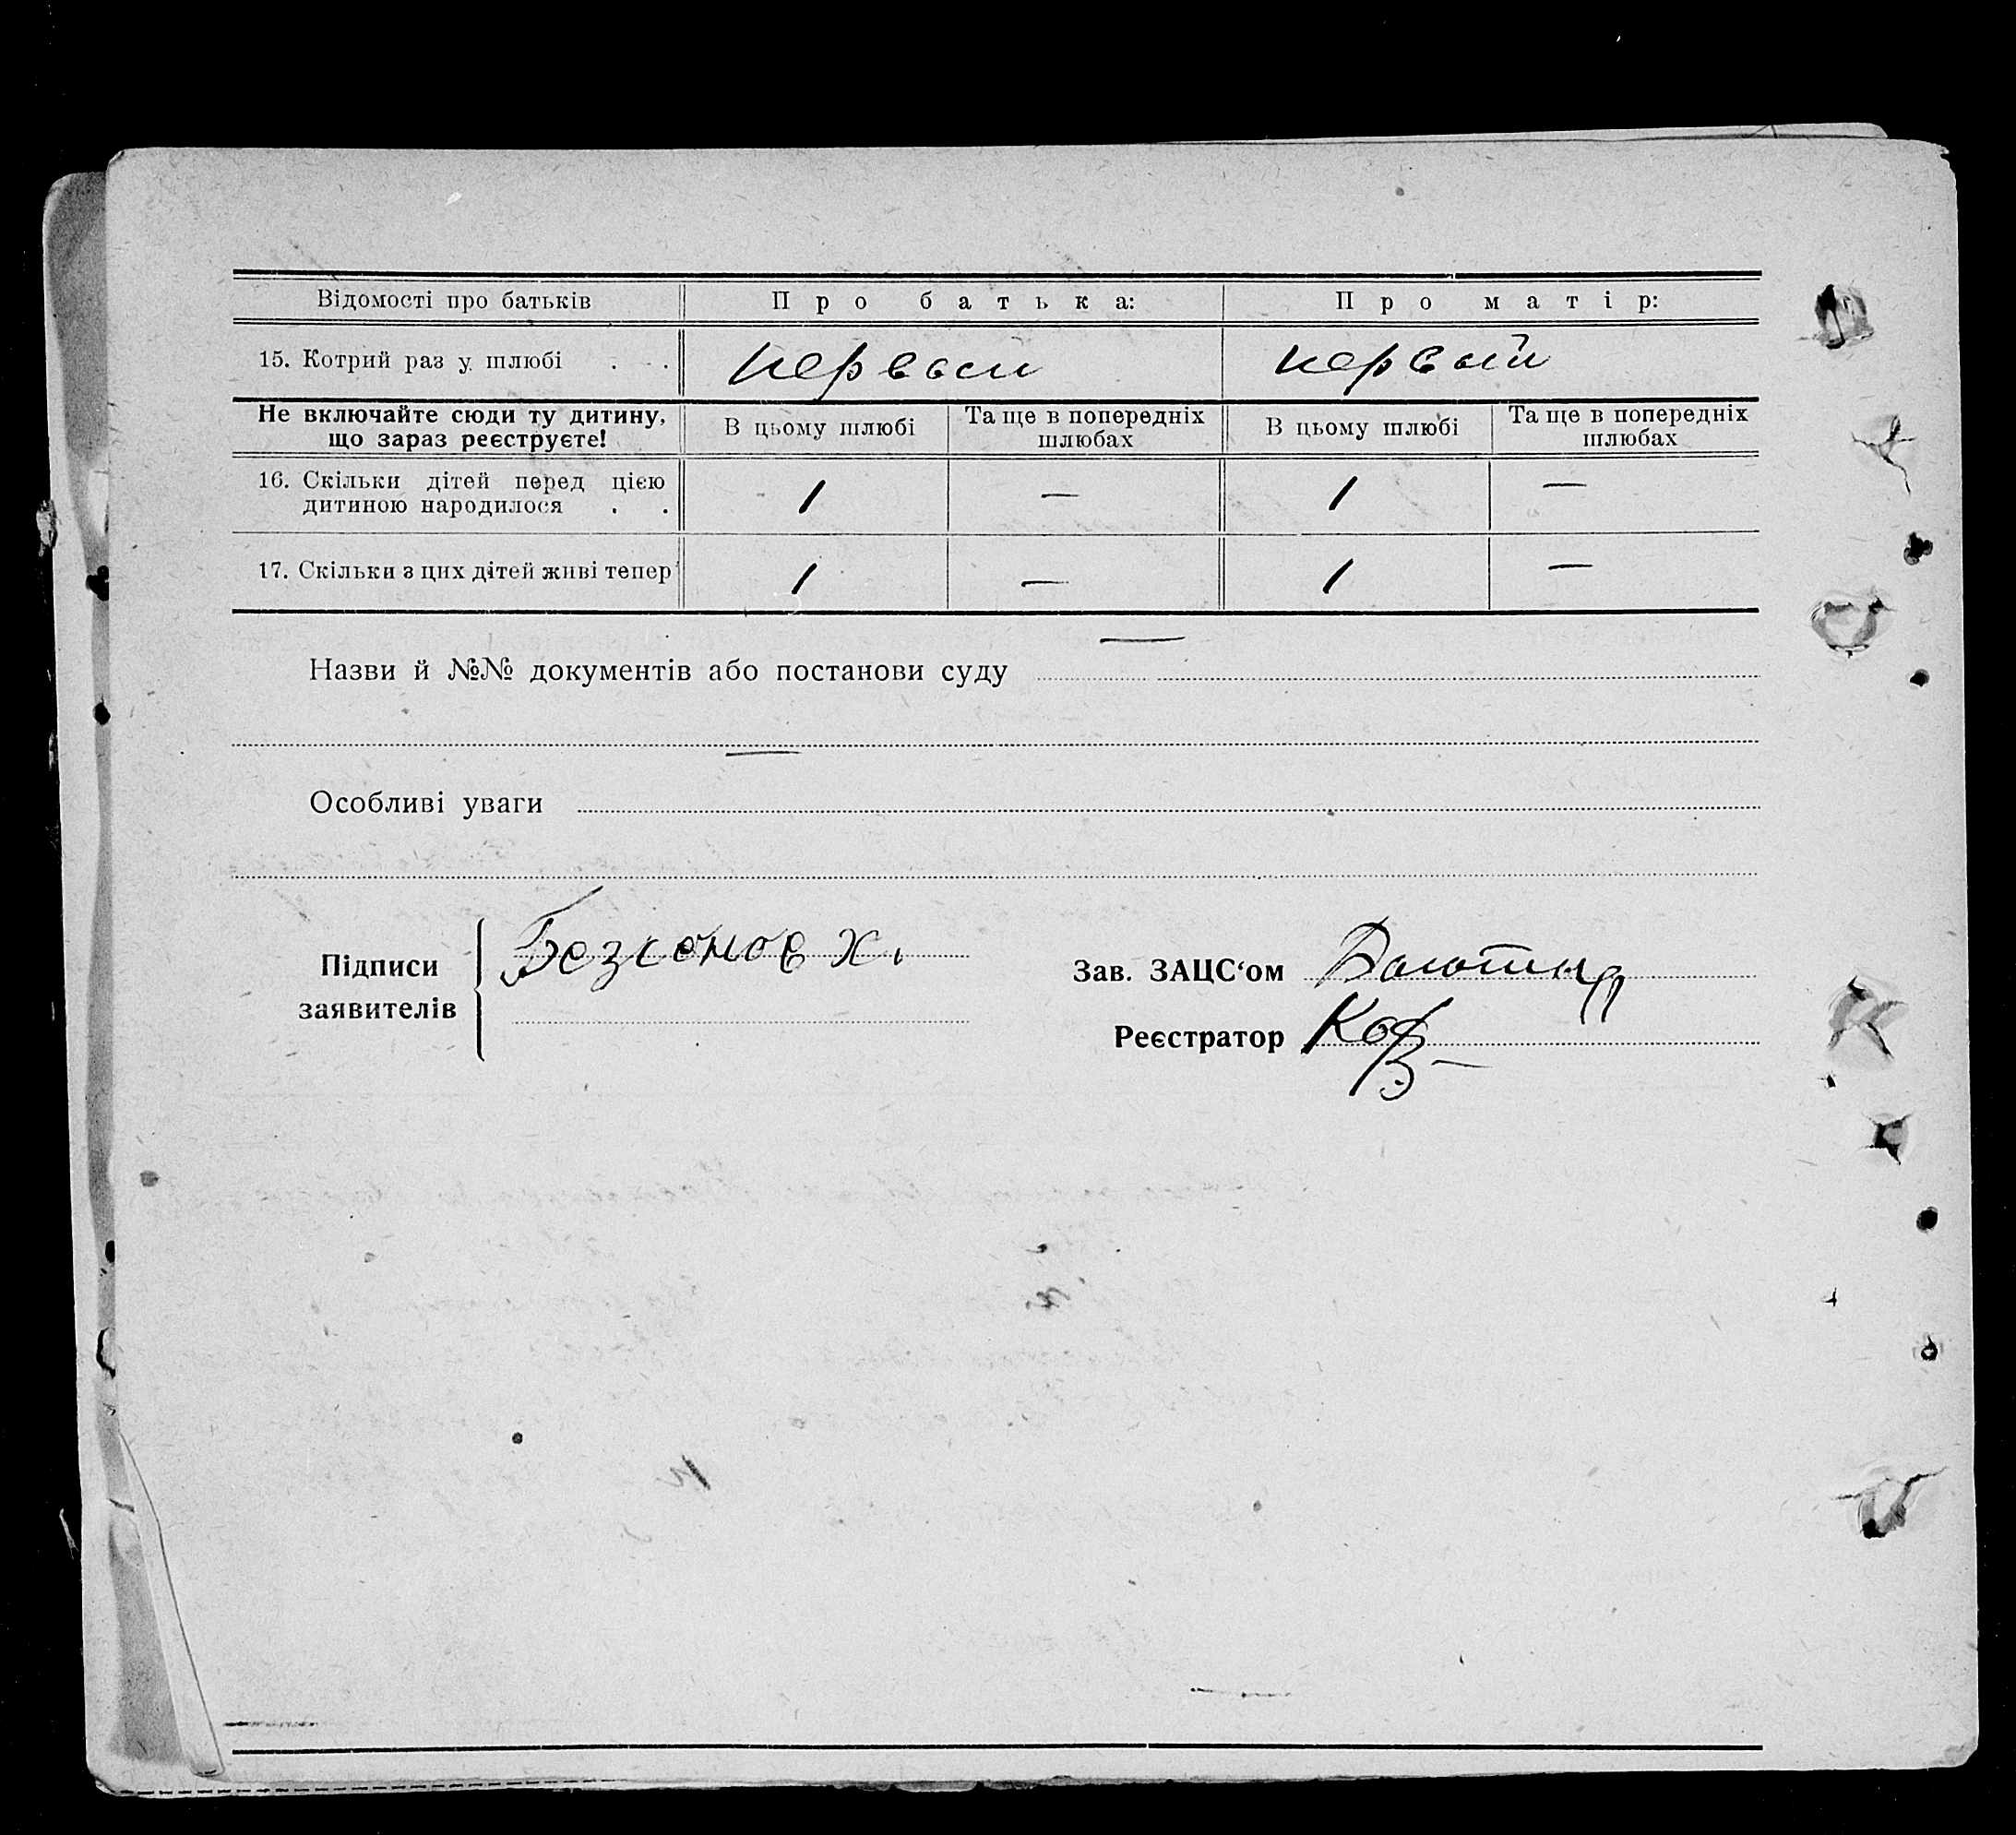 Відомості про батьків Про батька: Про матір:
15. Котрий раз у шлюбі . . . первый первый
Не включайте сюди ту дитину, що зараз реєструєте! В цьому шлюбі Та ще в попередніх шлюбах В цьому шлюбі Та ще в попередніх шлюбах
16. Скільки дітей перед цією
дитиною народилося . . 1 — 1 —
17. Скільки з цих дітей живі тепер 1 — 1 —
Назви й №№ документів або постанови суду —
—
Особливі уваги
Підписи
заявителів
Безсонов Х.
Зав. ЗАЦС‘ом
Реєстратор